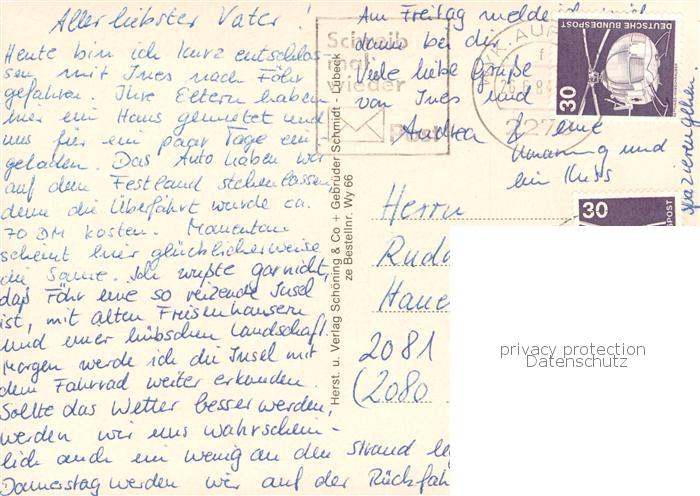 Allerliebster Vater!
Heute bin ich kurz entschlos-
sen mit Ines nach Föhr
gefahren. Ihre Eltern haben
hier ein Haus gemietet und
uns für ein paar Tage ein-
geladen. Das Auto haben wir
auf dem Festland stehenlassen
denn die Überfahrt würde ca.
70 DM kosten. Momentan
scheint hier glücklicherweise
die Sonne. Ich wußte gar nicht,
daß Föhr eine so reizende Insel
ist, mit alten Friesenhäusern
und einer hübschen Landschaft.
Morgen werde ich die Insel mit
dem Fahrrad weiter erkunden.
Sollte das Wetter besser werden,
werden wir uns wahrschein-
lich auch ein wenig an den Strand
Donnerstag werden wir auf der Rückfah
Am Freitag melde ich mich
dann bei dir
Viele liebe Grüße
von Ines und
Andrea
eine
Umarmung und
ein Kuss
spazierengehen.
Schreib
mal
wieder
Post
DEUTSCHE BUNDESPOST
30
30
Herrn
Hane
2081
(2080
Herst. u. Verlag Schöning & Co + Gebrüder Schmidt - Lübeck
ze Bestellnr. Wy 66
privacy protection
Datenschutz